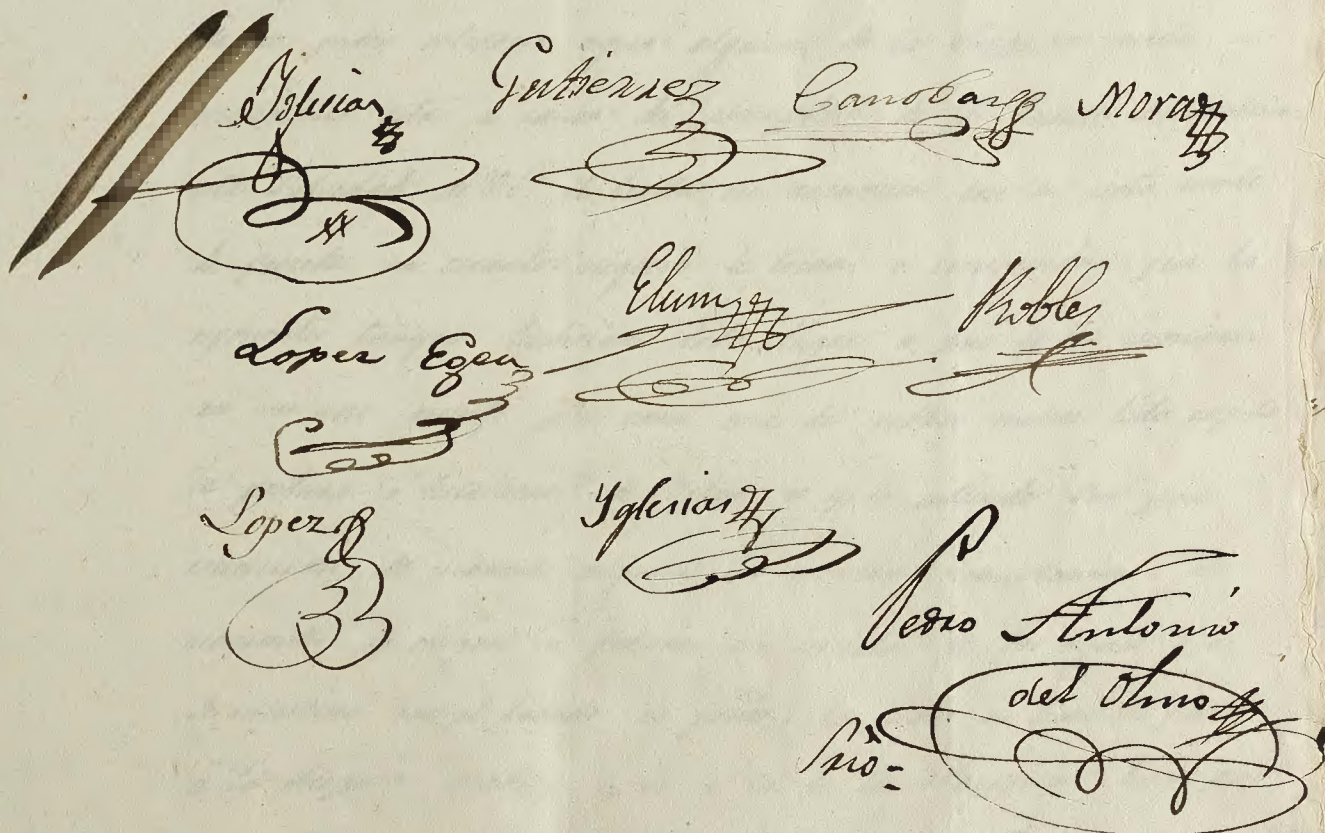 Yglesias Gutierrez Canobas Mora
Lopez Egea Robles
Lopez Yglesias
Pedro Antonio
del Olmo
Srio=